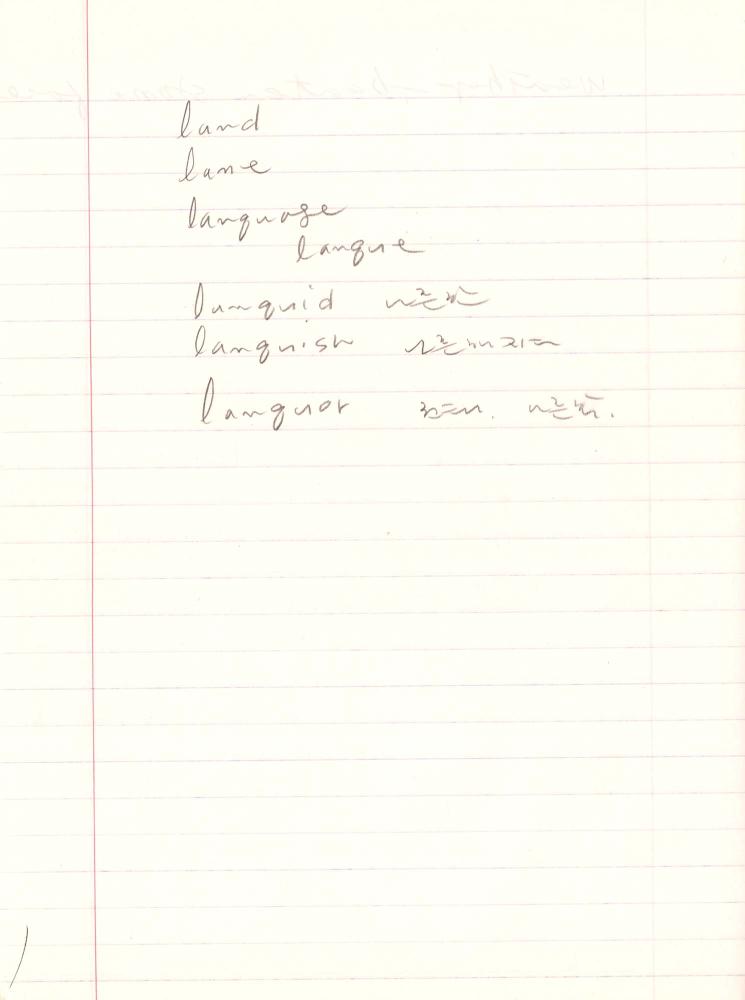 land
lane
language
langue
languid 나른한
languish 나른해지다
languor 권태. 나른함.